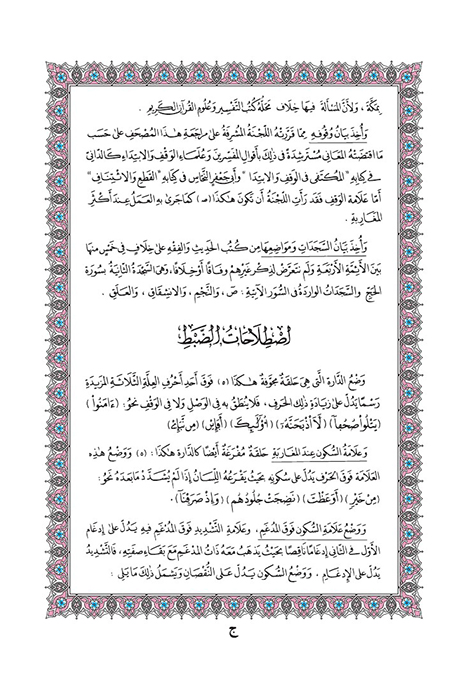 بِمَكَّةَ ، وَلِأَنَّ المَسْأَلَةَ فِيهَا خِلَافٌ مَحَلُّهُ كُتُبُ التَّفْسِيرِ وَعُلُومِ القُرْآنِ الكَرِيمِ .
وَأُخِذَ بَيَانُ وُقُوفِهِ مِمَّا قَرَّرَتْهُ اللَّجْنَةُ المُشْرِفَةُ عَلَى مُرَاجَعَةِ هَذَا المُصْحَفِ عَلَى حَسَبِ
مَا اقْتَضَتْهُ المَعَانِي مُسْتَرْشِدَةً فِي ذَلِكَ بِأَقْوَالِ المُفَسِّرِينَ وَعُلَمَاءِ الوَقْفِ وَالابْتِدَاءِ كَالدَّانِي
فِي كِتَابِهِ "المُكْتَفَى فِي الوَقْفِ وَالابْتِدَا" وَأَبِي جَعْفَرٍ النَّحَّاسِ فِي كِتَابِهِ "القَطْعِ وَالائْتِنَافِ"
أَمَّا عَلَامَةُ الوَقْفِ فَقَدْ رَأَتِ اللَّجْنَةُ أَنْ تَكُونَ هَكَذَا (صـ) كَمَا جَرَى بِهِ العَمَلُ عِنْدَ أَكْثَرِ
المَغَارِبَةِ .
وَأُخِذَ بَيَانُ السَّجَدَاتِ وَمَوَاضِعِهَا مِنْ كُتُبِ الحَدِيثِ وَالفِقْهِ عَلَى خِلَافٍ فِي خَمْسٍ مِنْهَا
بَيْنَ الأَئِمَّةِ الأَرْبَعَةِ وَلَمْ تَتَعَرَّضْ لِذِكْرِ غَيْرِهِمْ وِفَاقًا أَوْ خِلَافًا، وَهِيَ السَّجْدَةُ الثَّانِيَةُ بِسُورَةِ
الحَجِّ وَالسَّجَدَاتُ الوَارِدَةُ فِي السُّوَرِ الآتِيَةِ : صٓ ، وَالنَّجْمِ ، وَالانْشِقَاقِ ، وَالعَلَقِ .
اصْطِلَاحَاتُ الضَّبْطِ
وَضْعُ الدَّارَةِ الَّتِي هِيَ حَلَقَةٌ مُجَوَّفَةٌ هَكَذَا (ه) فَوْقَ أَحَدِ أَحْرُفِ العِلَّةِ الثَّلَاثَةِ المَزِيدَةِ
رَسْمًا يَدُلُّ عَلَى زِيَادَةِ ذَلِكَ الحَرْفِ ، فَلَا يُنْطَقُ بِهِ فِي الوَصْلِ وَلَا فِي الوَقْفِ نَحْوُ : (ءَامَنُواْ)
(يَتْلُواْ صُحُفاً) (لَأَاْذْبَحَنَّهُۥ) (أُوْلَٰٓئِكَ) (أَفَإِيْن) (مِن نَّبَإِىْ)
وَعَلَامَةُ السُّكُونِ عِنْدَ المَغَارِبَةِ حَلَقَةٌ مُفَرَّغَةٌ أَيْضًا كَالدَّارَةِ هَكَذَا : (ه) وَوَضْعُ هَذِهِ
العَلَامَةِ فَوْقَ الحَرْفِ يَدُلُّ عَلَى سُكُونِهِ بِحَيْثُ يَقْرَعُهُ اللِّسَانُ إِذَا لَمْ يُشَدَّدْ مَا بَعْدَهُ نَحْوُ :
(مِنْ خَيْرٍ) (أَوَعَظْتَ) (نَضِجَتْ جُلُودُهُم) (وَإِذْ صَرَفْنَآ) .
وَوَضْعُ عَلَامَةِ السُّكُونِ فَوْقَ المُدْغَمِ ، وَعَلَامَةِ التَّشْدِيدِ فَوْقَ المُدْغَمِ فِيهِ يَدُلُّ عَلَى إِدْغَامِ
الأَوَّلِ فِي الثَّانِي إِدْغَامًا نَاقِصًا بِحَيْثُ يَذْهَبُ مَعَهُ ذَاتُ المُدْغَمِ مَعَ بَقَاءِ صِفَتِهِ ، فَالتَّشْدِيدُ
يَدُلُّ عَلَى الإِدْغَامِ ، وَوَضْعُ السُّكُونِ يَدُلُّ عَلَى النُّقْصَانِ وَيَشْمَلُ ذَلِكَ مَا يَلِي :
ج